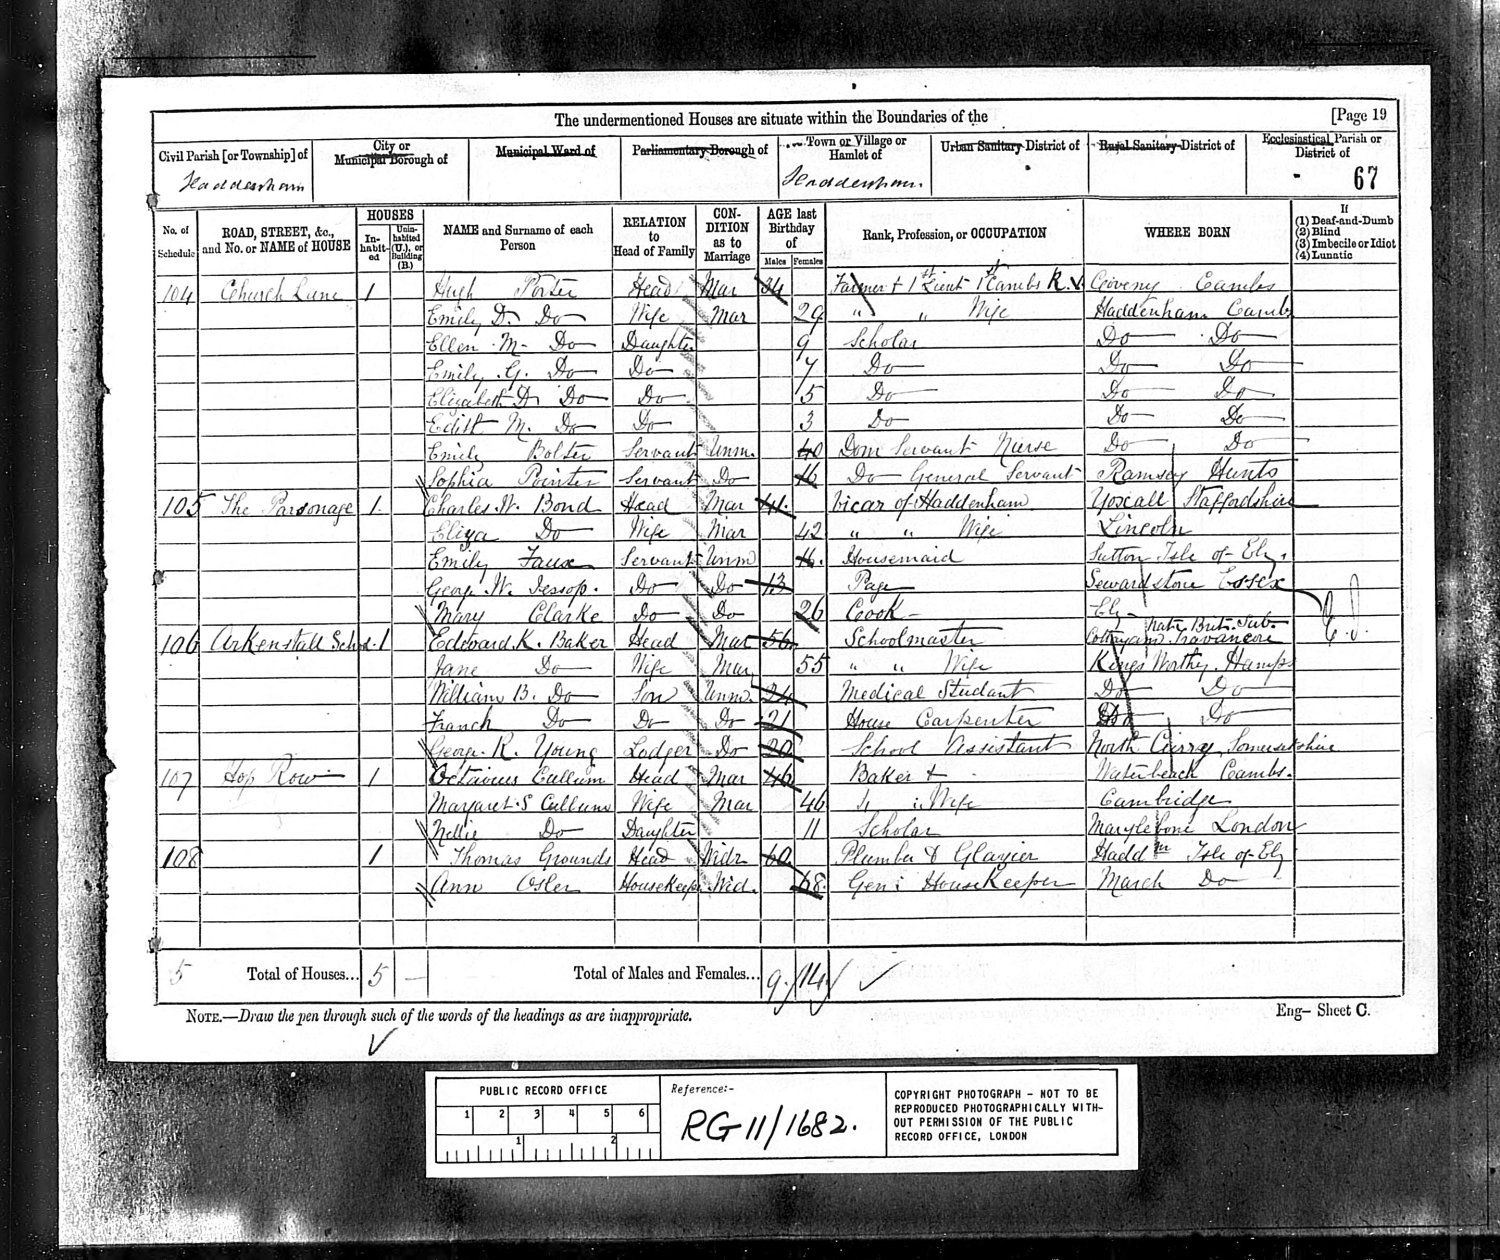 The undermentioned Houses are situate within the Boundaries of the [Page 19
Civil Parish [or Township] of City or Municipal Borough of Municipal Ward of Parliamentary Borough of Town or Village or Hamlet of Urban Sanitary District of Rural Sanitary District of Ecclesiastical Parish or District of
Haddenham Haddenham 67
No. of Schedule ROAD, STREET, &c., and No. or NAME of HOUSE HOUSES In-habit-ed Unin-habited (U.), or Building (B.) NAME and Surname of each Person RELATION to Head of Family CON-DITION as to Marriage AGE last Birthday of Males Females Rank, Profession, or OCCUPATION WHERE BORN If (1) Deaf-and-Dumb (2) Blind (3) Imbecile or Idiot (4) Lunatic
104 Church Lane 1 Hugh Porter Head Mar 34 Farmer + 1st Lieut 1st Cambs R.V. Coveny Cambs
Emily D. Do Wife Mar 29 " " Wife Haddenham Cambs
Ellen M. Do Daughter 9 Scholar Do Do
Emily G. Do Do 7 Do Do Do
Elizabeth D. Do Do 5 Do Do Do
Edith M. Do Do 3 Do Do Do
Emily Bolter Servant Unm. 40 Dom Servant Nurse Do Do
Sophia Pointer Servant Do 16 Do General Servant Ramsey Hunts
105 The Parsonage 1 Charles W. Bond Head Mar 41 Vicar of Haddenham Yoxall Staffordshire
Eliza Do Wife Mar 42 " " Wife Lincoln
Emily Faux Servant Unm 16. Housemaid Sutton Isle of Ely.
George W. Jessop. Do Do 13 Page Sewardstone Essex
Mary Clarke Do Do 26 Cook Ely
106 Arkenstall School 1 Edward K. Baker Head Mar 56 Schoolmaster Cottayam Travancore Natu. Brit. Sub.
Jane Do Wife Mar 55 " " Wife Kings Worthy. Hamps
William B. Do Son Unm. 24 Medical Student Do Do
Franch Do Do Do 21 House Carpenter Do Do
George R. Young Lodger Do 20 School Assistant North Curry Somersetshire
107 Hop Row 1 Octavius Cullum Head Mar 46 Baker + Waterbeach Cambs.
Margaret S Cullum Wife Mar 46 " " Wife Cambridge
Nellie Do Daughter 11 Scholar Marylebone London
108 1 Thomas Grounds Head Widr 60 Plumber & Glazier Haddm Isle of Ely
Ann Osler Housekeeper Wid. 68. Gen: Housekeeper March Do
5 Total of Houses... 5 — Total of Males and Females... 9 14
NOTE.—Draw the pen through such of the words of the headings as are inappropriate. Eng- Sheet C.
PUBLIC RECORD OFFICE
1 2 3 4 5 6
1 2
Reference:-
RG 11/1682.
COPYRIGHT PHOTOGRAPH - NOT TO BE
REPRODUCED PHOTOGRAPHICALLY WITH-
OUT PERMISSION OF THE PUBLIC
RECORD OFFICE, LONDON